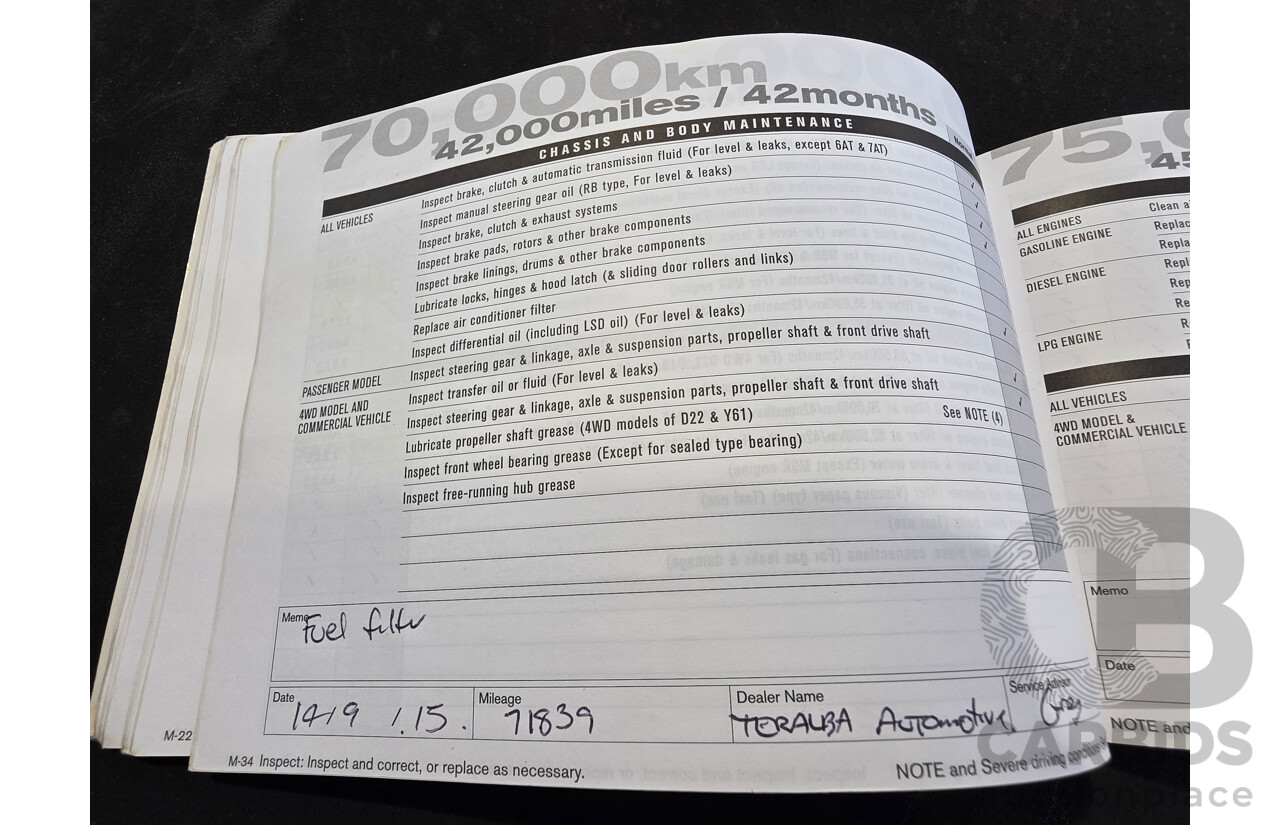 70,000km
42,000miles / 42months
CHASSIS AND BODY MAINTENANCE
ALL VEHICLES
Inspect brake, clutch & automatic transmission fluid (For level & leaks, except 6AT & 7AT)
Inspect manual steering gear oil (RB type, For level & leaks)
Inspect brake, clutch & exhaust systems
Inspect brake pads, rotors & other brake components
Inspect brake linings, drums & other brake components
Lubricate locks, hinges & hood latch (& sliding door rollers and links)
Replace air conditioner filter
Inspect differential oil (including LSD oil) (For level & leaks)
PASSENGER MODEL
Inspect steering gear & linkage, axle & suspension parts, propeller shaft & front drive shaft
4WD MODEL AND
COMMERCIAL VEHICLE
Inspect transfer oil or fluid (For level & leaks)
Inspect steering gear & linkage, axle & suspension parts, propeller shaft & front drive shaft
Lubricate propeller shaft grease (4WD models of D22 & Y61) See NOTE (4)
Inspect front wheel bearing grease (Except for sealed type bearing)
Inspect free-running hub grease
Memo
Fuel filter
Date
14/9/15.
Mileage
71839
Dealer Name
TERALBA AUTOMOTIVE
Service Advisor
Greg
M-34 Inspect: Inspect and correct, or replace as necessary.
NOTE and Severe driving
M-22
75,
45
ALL ENGINES
Clean
GASOLINE ENGINE
DIESEL ENGINE
LPG ENGINE
ALL VEHICLES
4WD MODEL &
COMMERCIAL VEHICLE
Memo
Date
NOTE and
CB
CARBIDS